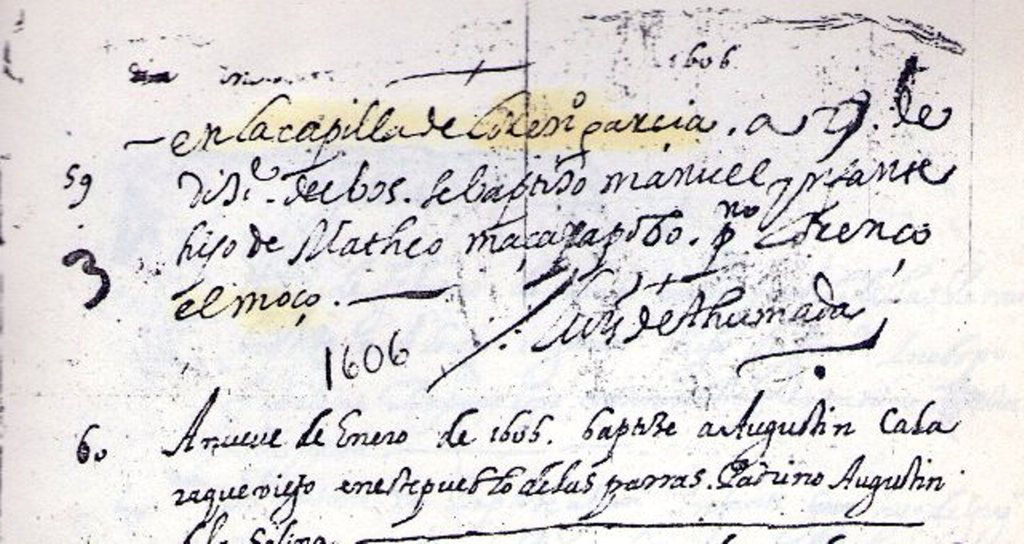 1606
en la capilla de Loren.º garcia. a 29. de
59 diziẽ. de 605. se baptizo manuel ynfante
hijo de Matheo maçacapobo. p.no Lorenço
3 el moço.
Luis de Ahumada
1606
60 A nueve de Enero de 1606. baptize a Augustin Caca
raque viejo en este pueblo de las parras. Padrino Augustin
de Salina